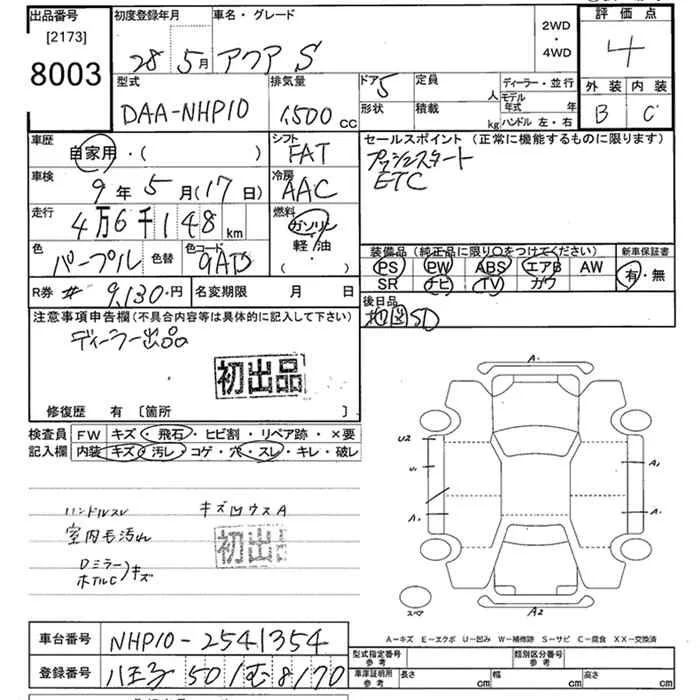 出品番号
[2173]
8003
初度登録年月
28 5月
車名・グレード
アクア S
2WD
・
4WD
評価点
4
外装 内装
B C
型式
DAA-NHP10
排気量
1,500 CC
ドア 5
形状
定員 人
積載 kg
ディーラー・並行
モデル年式 年
ハンドル 左・右
車歴
自家用・( )
シフト
FAT
セールスポイント (正常に機能するものに限ります)
プッシュスタート
ETC
車検
9年5月(17日)
冷房
AAC
走行
4万6千148km
燃料
ガソリン
軽油
( ・ )
色
パープル
色替
色コード
9AD
装備品 (純正品に限り○をつけてください)
PS PW ABS エアB AW
SR ナビ TV カワ
新車保証書
有・無
R券 # 9,130・円
名変期限 月 日
後日品
地図SD
注意事項申告欄(不具合内容等は具体的に記入して下さい)
ディーラー出品
初出品
修復歴 有 [箇所 ]
検査員記入欄
FW キズ・飛石・ヒビ割・リペア跡・×要
内装 キズ・汚レ・コゲ・穴・スレ・キレ・破レ
ハンドルスレ
キズ凹ウスA
室内毛汚れ
初出品
Dミラー
ホイルC)キズ
A・
U2
A1
A2
スペア
A−キズ E−エクボ U−凹み W−補修跡 S−サビ C−腐食 XX−交換済
車台番号 NHP10-2541354
登録番号 八王子 501 む 8170
型式指定番号 参考
類別区分番号 参考
車庫証明用 参考 長さ cm 幅 cm 高さ cm